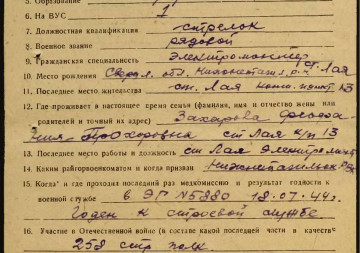 5. Образование
6. На ВУС 1
7. Должностная квалификация стрелок
8. Военное звание рядовой
9. Гражданская специальность электромонтер
10. Место рождения Сверд. обл. Нижнетагил. р-н ст. Лая
11. Последнее место жительства ст. Лая пункт 13
12. Где проживает в настоящее время семья (фамилия, имя и отчество жены или
родителей и точный их адрес) Захарова
Прохоровна ст Лая 13
13. Последнее место работы и должность ст Лая
14. Каким райгорвоенкоматом и когда призван
15. Когда и где проходил последний раз медкомиссию и результат годности к
военной службе в ЭГ №5880 18.07.44г.
Годен к строевой службе
16. Участие в Отечественной войне (в составе какой последней части в качестве
258 стр полк.